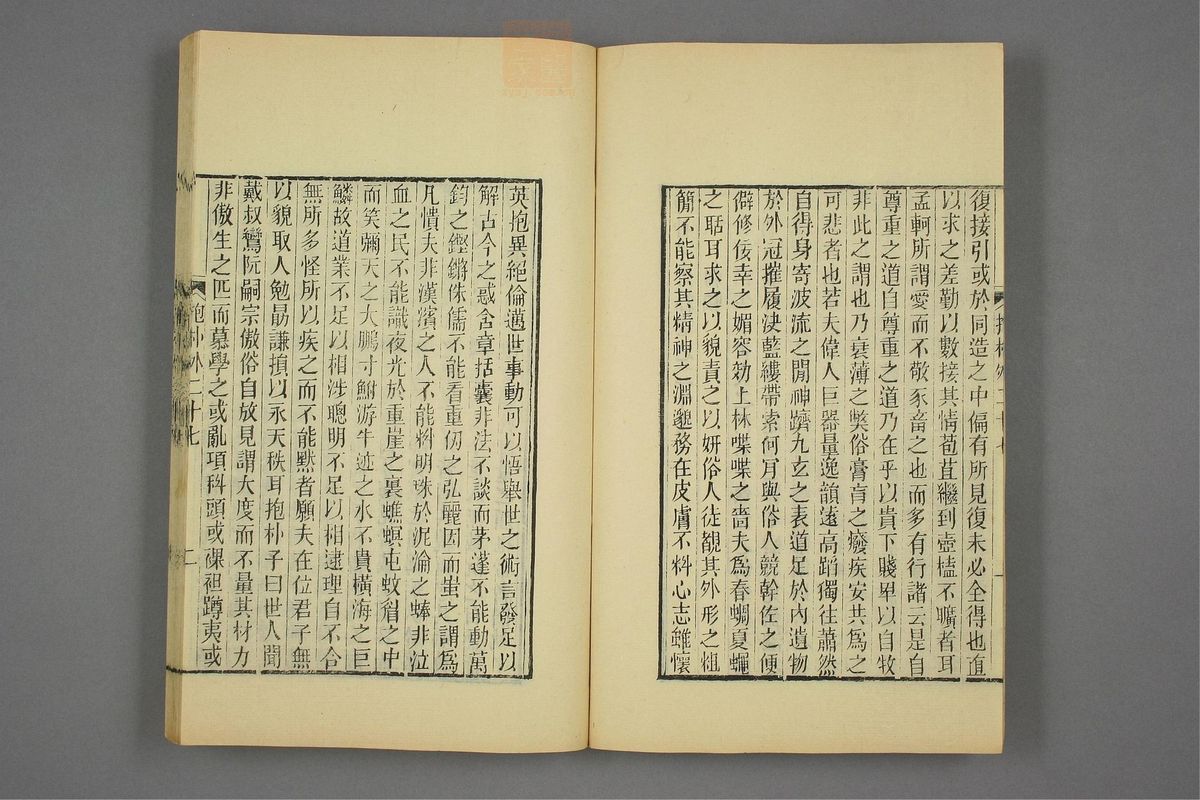 復接引或於同造之中偏有所見復未必全得也直
以求之差勤以數接其情苞苴繼到壺榼不曠者耳
孟軻所謂愛而不敬豕畜之也而多有行諸云是自
尊重之道自尊重之道乃在乎以貴下賤卑以自牧
非此之謂也乃衰薄之弊俗膏肓之癈疾安共爲之
可悲者也若夫偉人巨器量逸韻遠高蹈獨往蕭然
自得身寄波流之間神躋九玄之表道足於內遺物
於外冠摧履決藍縷帶索何肎與俗人競幹佐之便
僻修佞幸之媚容効上林喋喋之嗇夫爲春蜩夏蠅
之聒耳求之以貌責之以妍俗人徒覩其外形之粗
簡不能察其精神之淵邈務在皮膚不料心志雖懷
英抱異絕倫邁世事動可以悟舉世之術言發足以
解古今之惑含章括囊非法不談而茅蓬不能動萬
鈞之鏗鏘侏儒不能看重仞之弘麗因而蚩之謂爲
凡憒夫非漢濱之人不能料明珠於泥淪之蜯非泣
血之民不能識夜光於重崖之裏蟭螟屯蚊眉之中
而笑彌天之大鵬寸鮒游牛迹之水不貴橫海之巨
鱗故道業不足以相涉聰明不足以相逮理自不合
無所多怪所以疾之而不能默者願夫在位君子無
以貌取人勉勗謙損以永天秩耳抱朴子曰世人聞
戴叔鸞阮嗣宗傲俗自放見謂大度而不量其材力
非傲生之匹而慕學之或亂項科頭或祼袒蹲夷或
抱朴外二十七
二